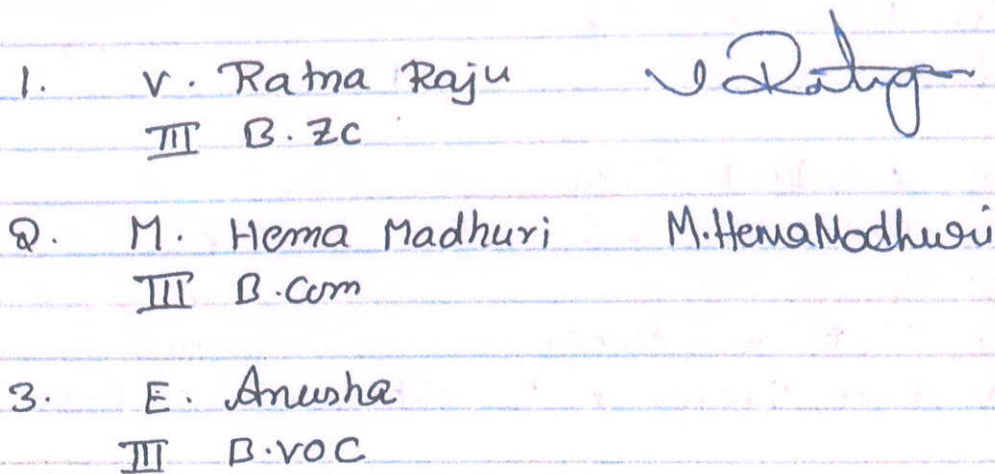 1. V. Ratna Raju
III B.ZC
2. M. Hema Madhuri M.HemaMadhuri
III B.Com
3. E. Anusha
III B.VOC